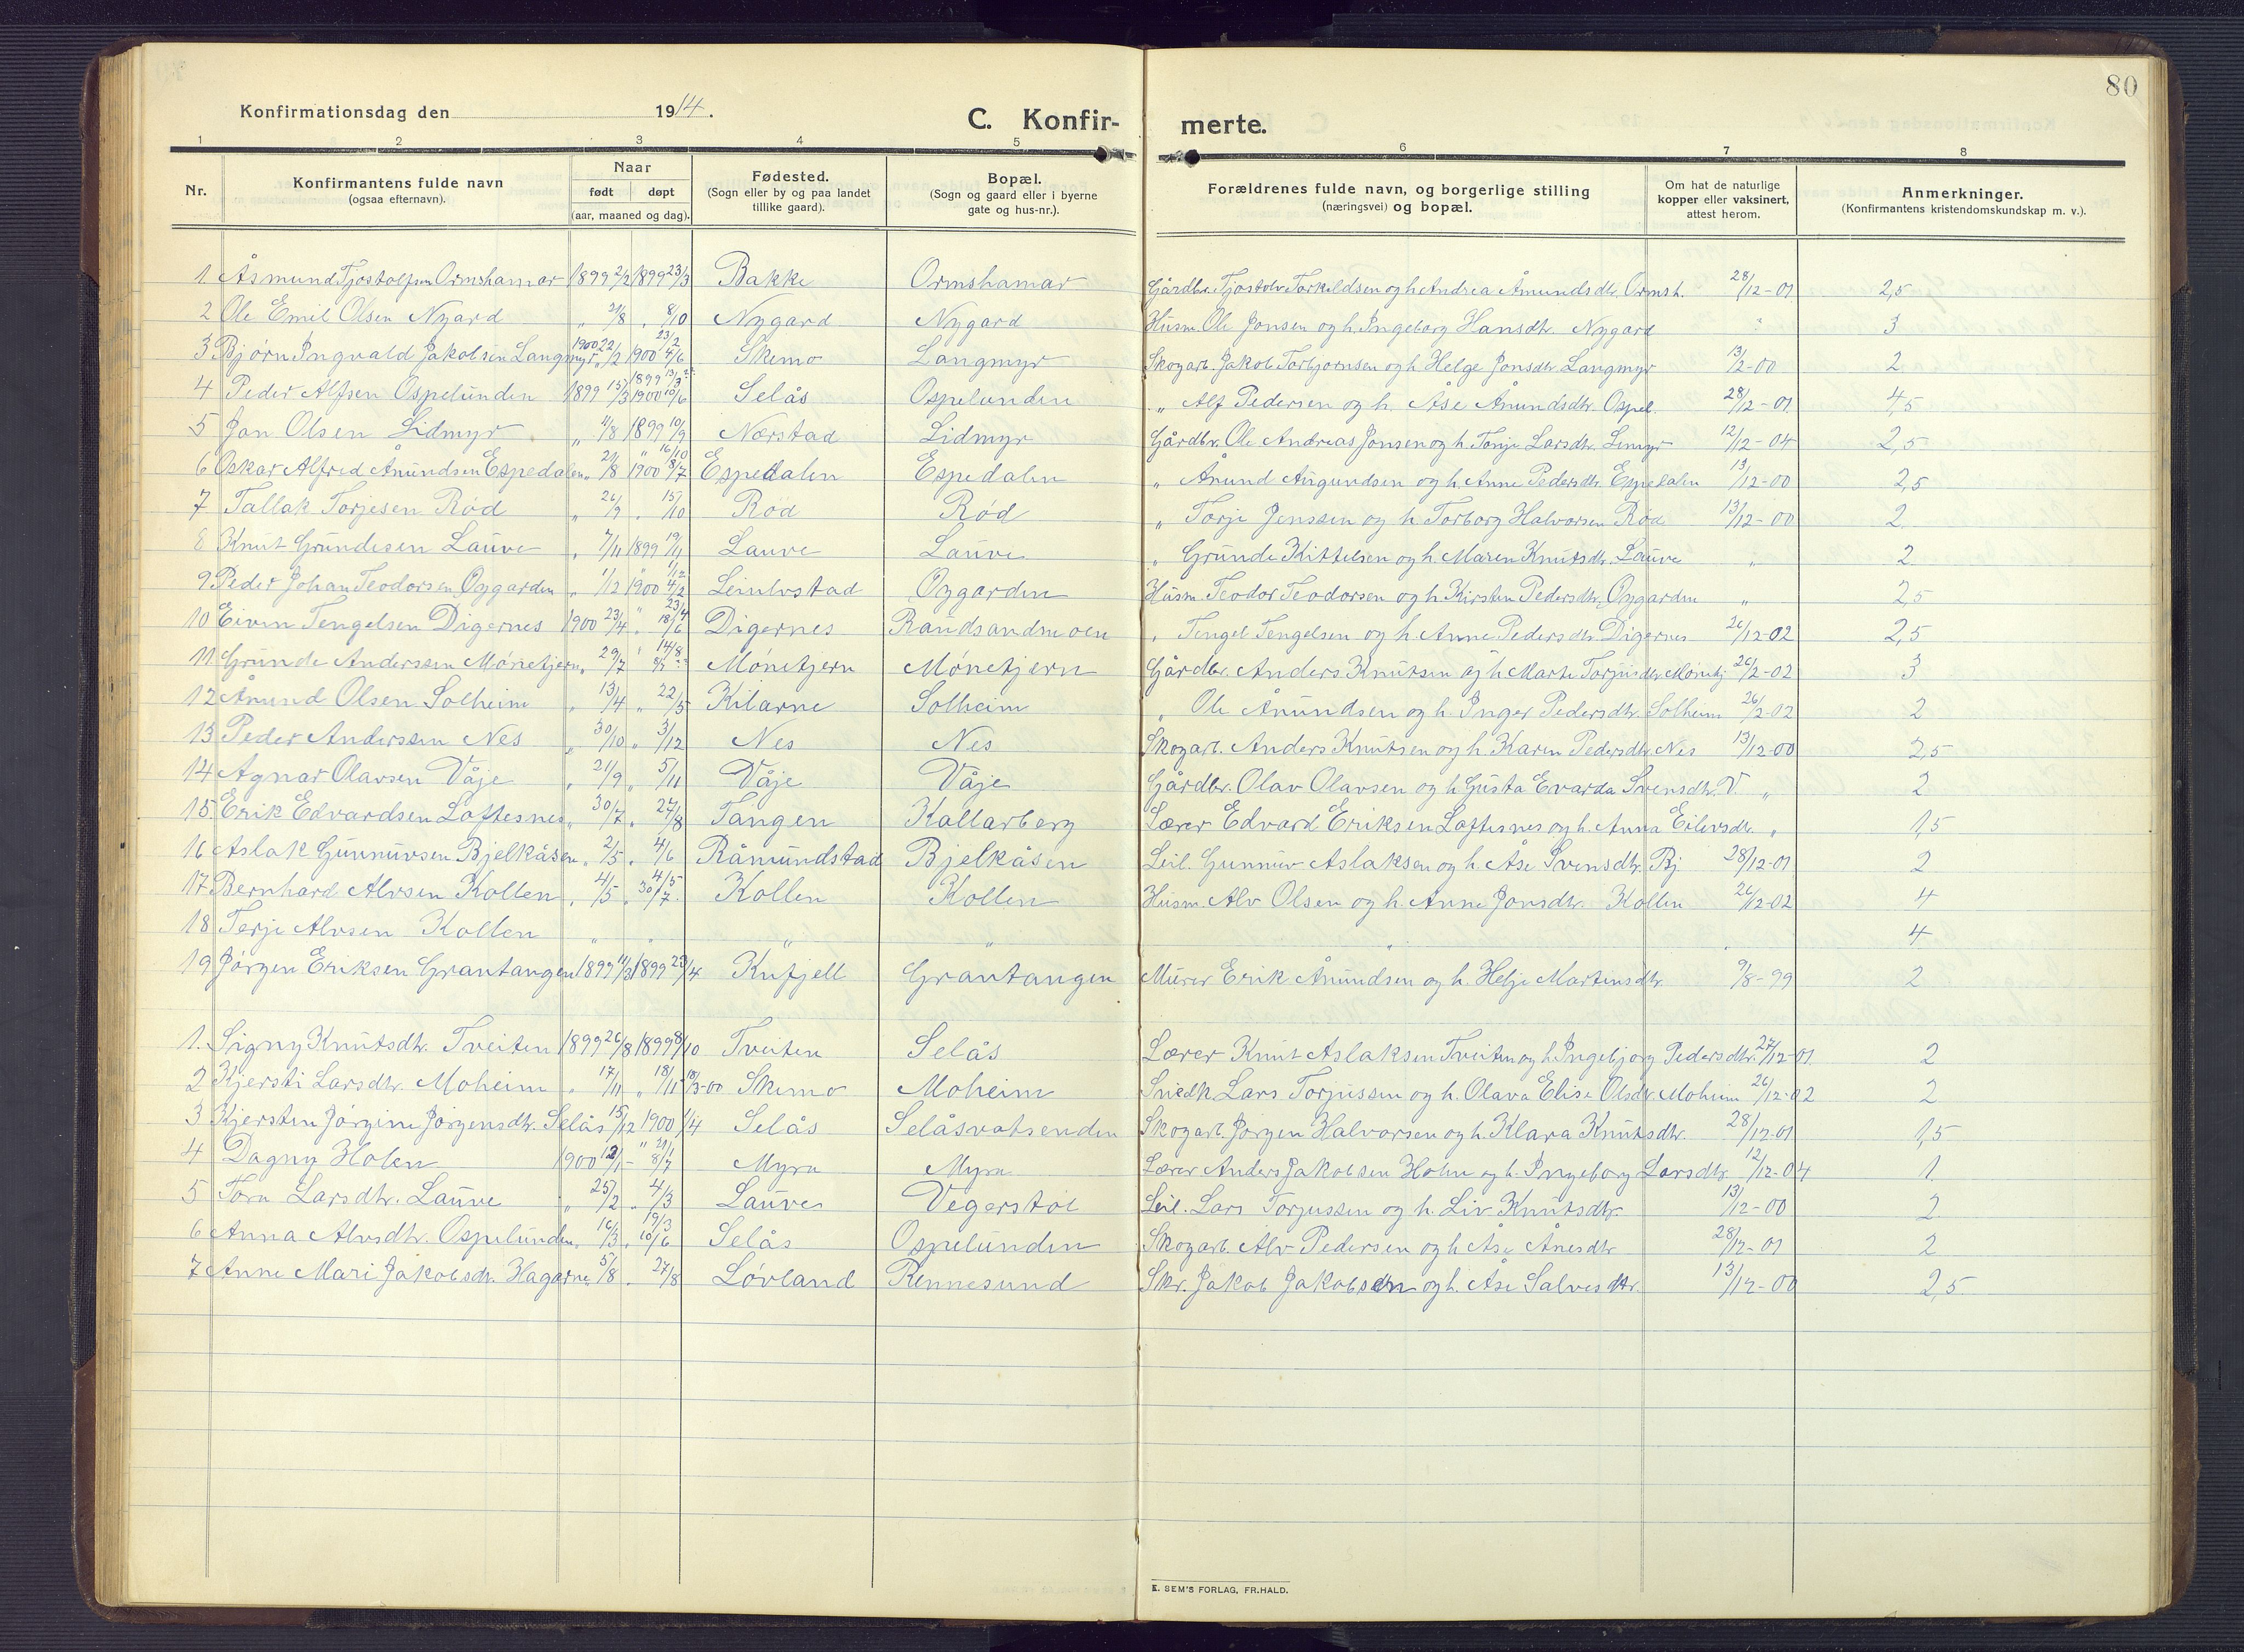 80
Konfirmationsdag den 1914.
C. Konfir- merte.
1 2 3 4 5 6 7 8
Nr.
Konfirmantens fulde navn
(ogsaa efternavn).
Naar
født døpt
(aar, maaned og dag).
Fødested.
(Sogn eller by og paa landet
tillike gaard).
Bopæl.
(Sogn og gaard eller i byerne
gate og hus-nr.).
Forældrenes fulde navn, og borgerlige stilling
(næringsvei) og bopæl.
Om hat de naturlige
kopper eller vaksinert,
attest herom.
Anmerkninger.
(Konfirmantens kristendomskundskap m. v.).
1 Åsmund Tjostolfsen Ormshamar 1899 2/2 1899 23/3 Bakke Ormshamar Gårdbr. Tjostolv Torkeldsen og h. Andrea Åmundsdtr. Ormsh. 28/12-01 2,5
2 Ole Emil Olsen Nygard " /8 " 8/10 Nygard Nygard Husm. Ole Jonsen og h. Ingeborg Hansdtr. Nygard 3
3 Bjørn Ingvald Jakobsen Langmyr 1900 22/2 1900 4/6 Skemo Langmyr Skogarb. Jakob Torbjornsen og h. Helge Jonsdtr. Langmyr 13/2-00 2
4 Peder Alfsen Ospelunden 1899 15/3 1899 1900 10/6 Selås Ospelunden " Alf Pedersen og h. Åse Ånundsdtr. Ospel. 28/12-01 4,5
5 Jon Olsen Lidmyr " 11/8 1899 10/9 Nærstad Lidmyr Gårdbr. Ole Andreas Jonsen og h. Tonje Larsdtr. 12/12-04 2,5
6 Oskar Alfred Ånundsen Espedalen " 21/8 " 16/10 1900 8/7 Espedalen Espedalen " Ånund Augundsen og h. Anne Pedersdtr. Espedalen 13/12-00 2,5
7 Tallak Torjesen Rød " 26/9 " 15/10 Rød Rød " Torje Jenssen og h. Torborg Halvorsen Rød 13/12-00 2
8 Knut Grundesen Lauve " 7/11 1899 19/11 Lauve Lauve " Grunde Kittelsen og h. Maren Knutsdtr. Lauve " 2
9 Peder Johan Teodorsen Øygarden " 1/12 1900 4/2 Øygarden Husm. Teodor Teodorsen og h. Kirsten Pedersdtr. Øygarden " 2,5
10 Eivin Tengelsen Digernes 1900 23/4 " 23/4 18/6 Digernes Raudsandmoen " Tengel Tengelsen og h. Anne Pedersdtr. Digernes 26/12-02 2,5
11 Grunde Anderssen Mónetjern " 29/7 " 14/8 Mónetjern Mónetjern Gårdbr. Anders Knutsen og h. Marte 26/2-02 3
12 Ånund Olsen Solheim " 13/4 " 22/5 Kilarne Solheim " Ole Ånundsen og h. Inger Pedersdtr. Solheim 26/2-02 2
13 Peder Anderssen Nes " 30/10 " 3/12 Nes Nes Skogarb. Anders Knutsen og h. Karen Pedersdtr. Nes 13/12-00 2,5
14 Agnar Olavsen Våje " 21/9 " 5/11 Våje Våje Gårdbr. Olav Olavsen og h. Gusta Evarda Svensdtr. V. " 2
15 Erik Edvardsen Loftesnes " 30/7 " 27/8 Tangen Kallarberg Lærer Edvard Eriksen Loftesnes og h. Anna Eilevsdtr. " 1,5
16 Aslak Gunnuvsen Bjelkåsen " 2/5 " 4/6 Råmundstad Bjelkåsen Leil. Gunnuv Aslaksen og h. Åse Svensdtr. Bj. 28/12-01 2
17 Bernhard Alvsen Kollen " 4/5 " 4/5 30/7 Kollen Kollen Husm. Alv Olsen og h. Anne Jonsdtr. Kollen 26/12-02 4
18 Terje Alvsen Kollen " " " " " " 4
19 Jørgen Eriksen Grantangen 1899 11/3 1899 23/4 Knfjell Grantangen Murer Erik Ånundsen og h. Helje Martensdtr. 9/8-99 2
1. Signy Knutsdtr. Tveiten 1899 26/8 1899 8/10 Tveiten Selås Lærer Knut Aslaksen Tveiten og h. Ingebjorg Pedersdtr. 27/12-01 2
2 Kjersti Larsdtr. Moheim " 17/11 " 18/11 18/3-00 Skemo Moheim Snedk. Lars Torjussen og h. Olava Elise Olsdtr. Moheim 26/12-02 2
3 Kjersten Jørgine Jørgensdtr. Selås 15/12 1900 1/4 Selås Selåsvatsenden Skogarb. Jørgen Halvorsen og h. Klara Knutsdtr. 28/12-01 1,5
4 Dagny Holen 1900 12/1 - " 21/1 8/7 Myra Myra Lærer Anders Jakobsen Holen og h. Ingeborg Larsdtr. 12/12-04 1
5 Tora Larsdtr. Lauve " 25/2 " 4/3 Lauve Vegerstøl Leil. Lars Torjussen og h. Liv Knutsdtr. 13/12-00 2
6 Anna Alvsdtr. Ospelunden " 16/3 " 19/3 10/6 Selås Ospelunden Skogarb. Alv Pedersen og h. Åse Ånesdtr. 28/12-01 2
7 Anne Mari Jakobsdtr. Hagarne 5/8 " 27/8 Løvland Rennesund Skr. Jakob Jakobsen og h. Åse Salvesdtr. 13/12-00 2,5
E. SEM'S FORLAG, FR.HALD.